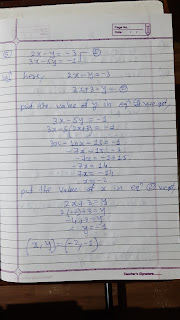 Page No.
Date
① 2x - y = -3
3x - 5y = -1 ②
Solⁿ here, 2x - y = -3
2x + 3 = y - ③
put the value of y in eqⁿ ② we get,
3x - 5y = -1
3x - 5(2x+3) = -1
3x - 10x - 15 = -1
-7x - 15 = -1
-7x = -1 + 15
-7x = 14
7x = -14
x = -2
put the value of x in eqⁿ ③ we get,
2x + 3 = y
2(-2) + 3 = y
-4 + 3 = y
y = -1
(x, y) = (-2, -1)
Teacher's Signature